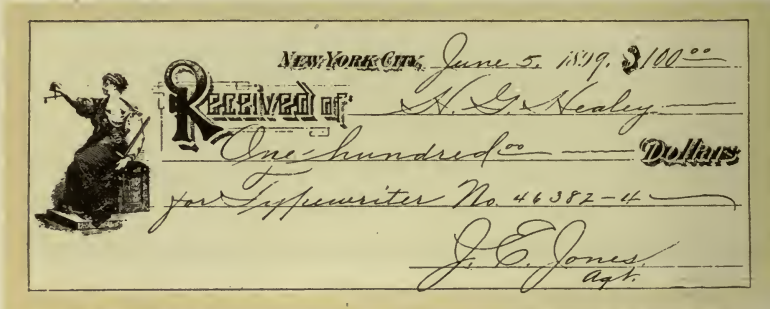 NEW YORK CITY, June 5. 1899. $100⁰⁰
Received of H. G. Healey
One-hundred⁰⁰ Dollars
for Typewriter No. 46382-4
J. E. Jones.
Agt.